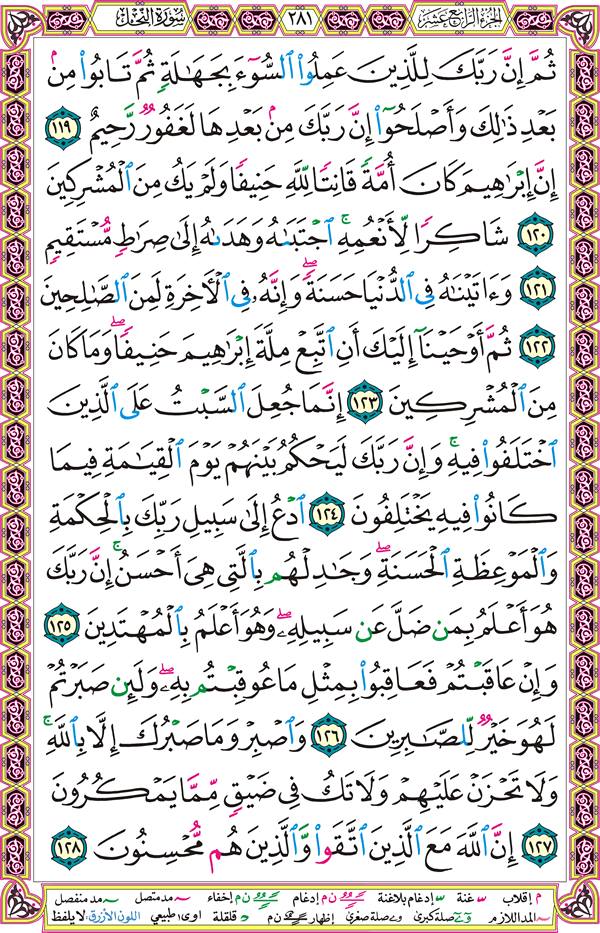 الجزء الرابع عشر ٢٨١ سورة النحل
ثُمَّ إِنَّ رَبَّكَ لِلَّذِينَ عَمِلُوا۟ ٱلسُّوٓءَ بِجَهَـٰلَةٍ ثُمَّ تَابُوا۟ مِنۢ
بَعْدِ ذَٰلِكَ وَأَصْلَحُوٓا۟ إِنَّ رَبَّكَ مِنۢ بَعْدِهَا لَغَفُورٌ رَّحِيمٌ ١١٩
إِنَّ إِبْرَٰهِيمَ كَانَ أُمَّةً قَانِتًا لِّلَّهِ حَنِيفًا وَلَمْ يَكُ مِنَ ٱلْمُشْرِكِينَ
١٢٠ شَاكِرًا لِّأَنْعُمِهِ ۚ ٱجْتَبَىٰهُ وَهَدَىٰهُ إِلَىٰ صِرَٰطٍ مُّسْتَقِيمٍ
١٢١ وَءَاتَيْنَـٰهُ فِى ٱلدُّنْيَا حَسَنَةً ۖ وَإِنَّهُۥ فِى ٱلْـَٔاخِرَةِ لَمِنَ ٱلصَّـٰلِحِينَ
١٢٢ ثُمَّ أَوْحَيْنَآ إِلَيْكَ أَنِ ٱتَّبِعْ مِلَّةَ إِبْرَٰهِيمَ حَنِيفًا ۖ وَمَا كَانَ
مِنَ ٱلْمُشْرِكِينَ ١٢٣ إِنَّمَا جُعِلَ ٱلسَّبْتُ عَلَى ٱلَّذِينَ
ٱخْتَلَفُوا۟ فِيهِ ۚ وَإِنَّ رَبَّكَ لَيَحْكُمُ بَيْنَهُمْ يَوْمَ ٱلْقِيَـٰمَةِ فِيمَا
كَانُوا۟ فِيهِ يَخْتَلِفُونَ ١٢٤ ٱدْعُ إِلَىٰ سَبِيلِ رَبِّكَ بِٱلْحِكْمَةِ
وَٱلْمَوْعِظَةِ ٱلْحَسَنَةِ ۖ وَجَـٰدِلْهُم بِٱلَّتِى هِىَ أَحْسَنُ ۚ إِنَّ رَبَّكَ
هُوَ أَعْلَمُ بِمَن ضَلَّ عَن سَبِيلِهِۦ ۖ وَهُوَ أَعْلَمُ بِٱلْمُهْتَدِينَ ١٢٥
وَإِنْ عَاقَبْتُمْ فَعَاقِبُوا۟ بِمِثْلِ مَا عُوقِبْتُم بِهِۦ ۖ وَلَئِن صَبَرْتُمْ
لَهُوَ خَيْرٌ لِّلصَّـٰبِرِينَ ١٢٦ وَٱصْبِرْ وَمَا صَبْرُكَ إِلَّا بِٱللَّهِ ۚ
وَلَا تَحْزَنْ عَلَيْهِمْ وَلَا تَكُ فِى ضَيْقٍ مِّمَّا يَمْكُرُونَ
١٢٧ إِنَّ ٱللَّهَ مَعَ ٱلَّذِينَ ٱتَّقَوا۟ وَّٱلَّذِينَ هُم مُّحْسِنُونَ ١٢٨
م إقلاب غنة إدغام بلاغنة ن م إدغام ن م إخفاء مد متصل مد منفصل
المد اللازم صلة كبرى صلة صغرى إظهار ن م قلقلة اوى ا طبيعي اللون الأزرق: لا يلفظ